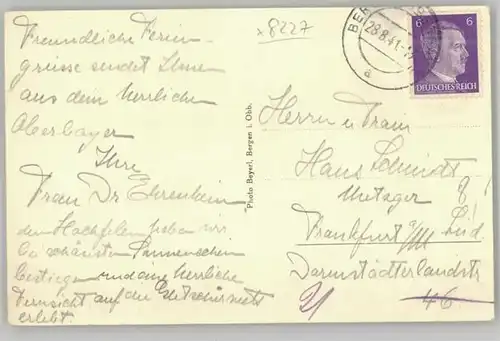 x 8227
BER
28.8.41
a
6 6
DEUTSCHES REICH
Freundliche Ferien-
grüsse sendet Ihnen
aus dem herrlichen
Oberbayern
Ihre
Frau Dr Ehrenhein
den Hochfelln haben wir
bei schönstem Sonnenschein
bestiegen und eine herrliche
Fernsicht auf die Gletscherwelt
erlebt.
Photo Beyerl, Bergen i. Obb.
Herrn u Frau
Hans Schmidt
Metzger
Frankfurt a/M Süd
Darmstädterlandstr
21 46